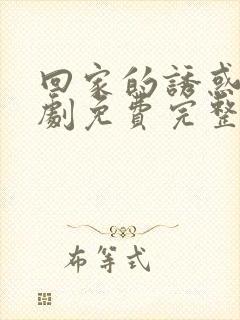 回家的誘惑
劇免費完整
布等式